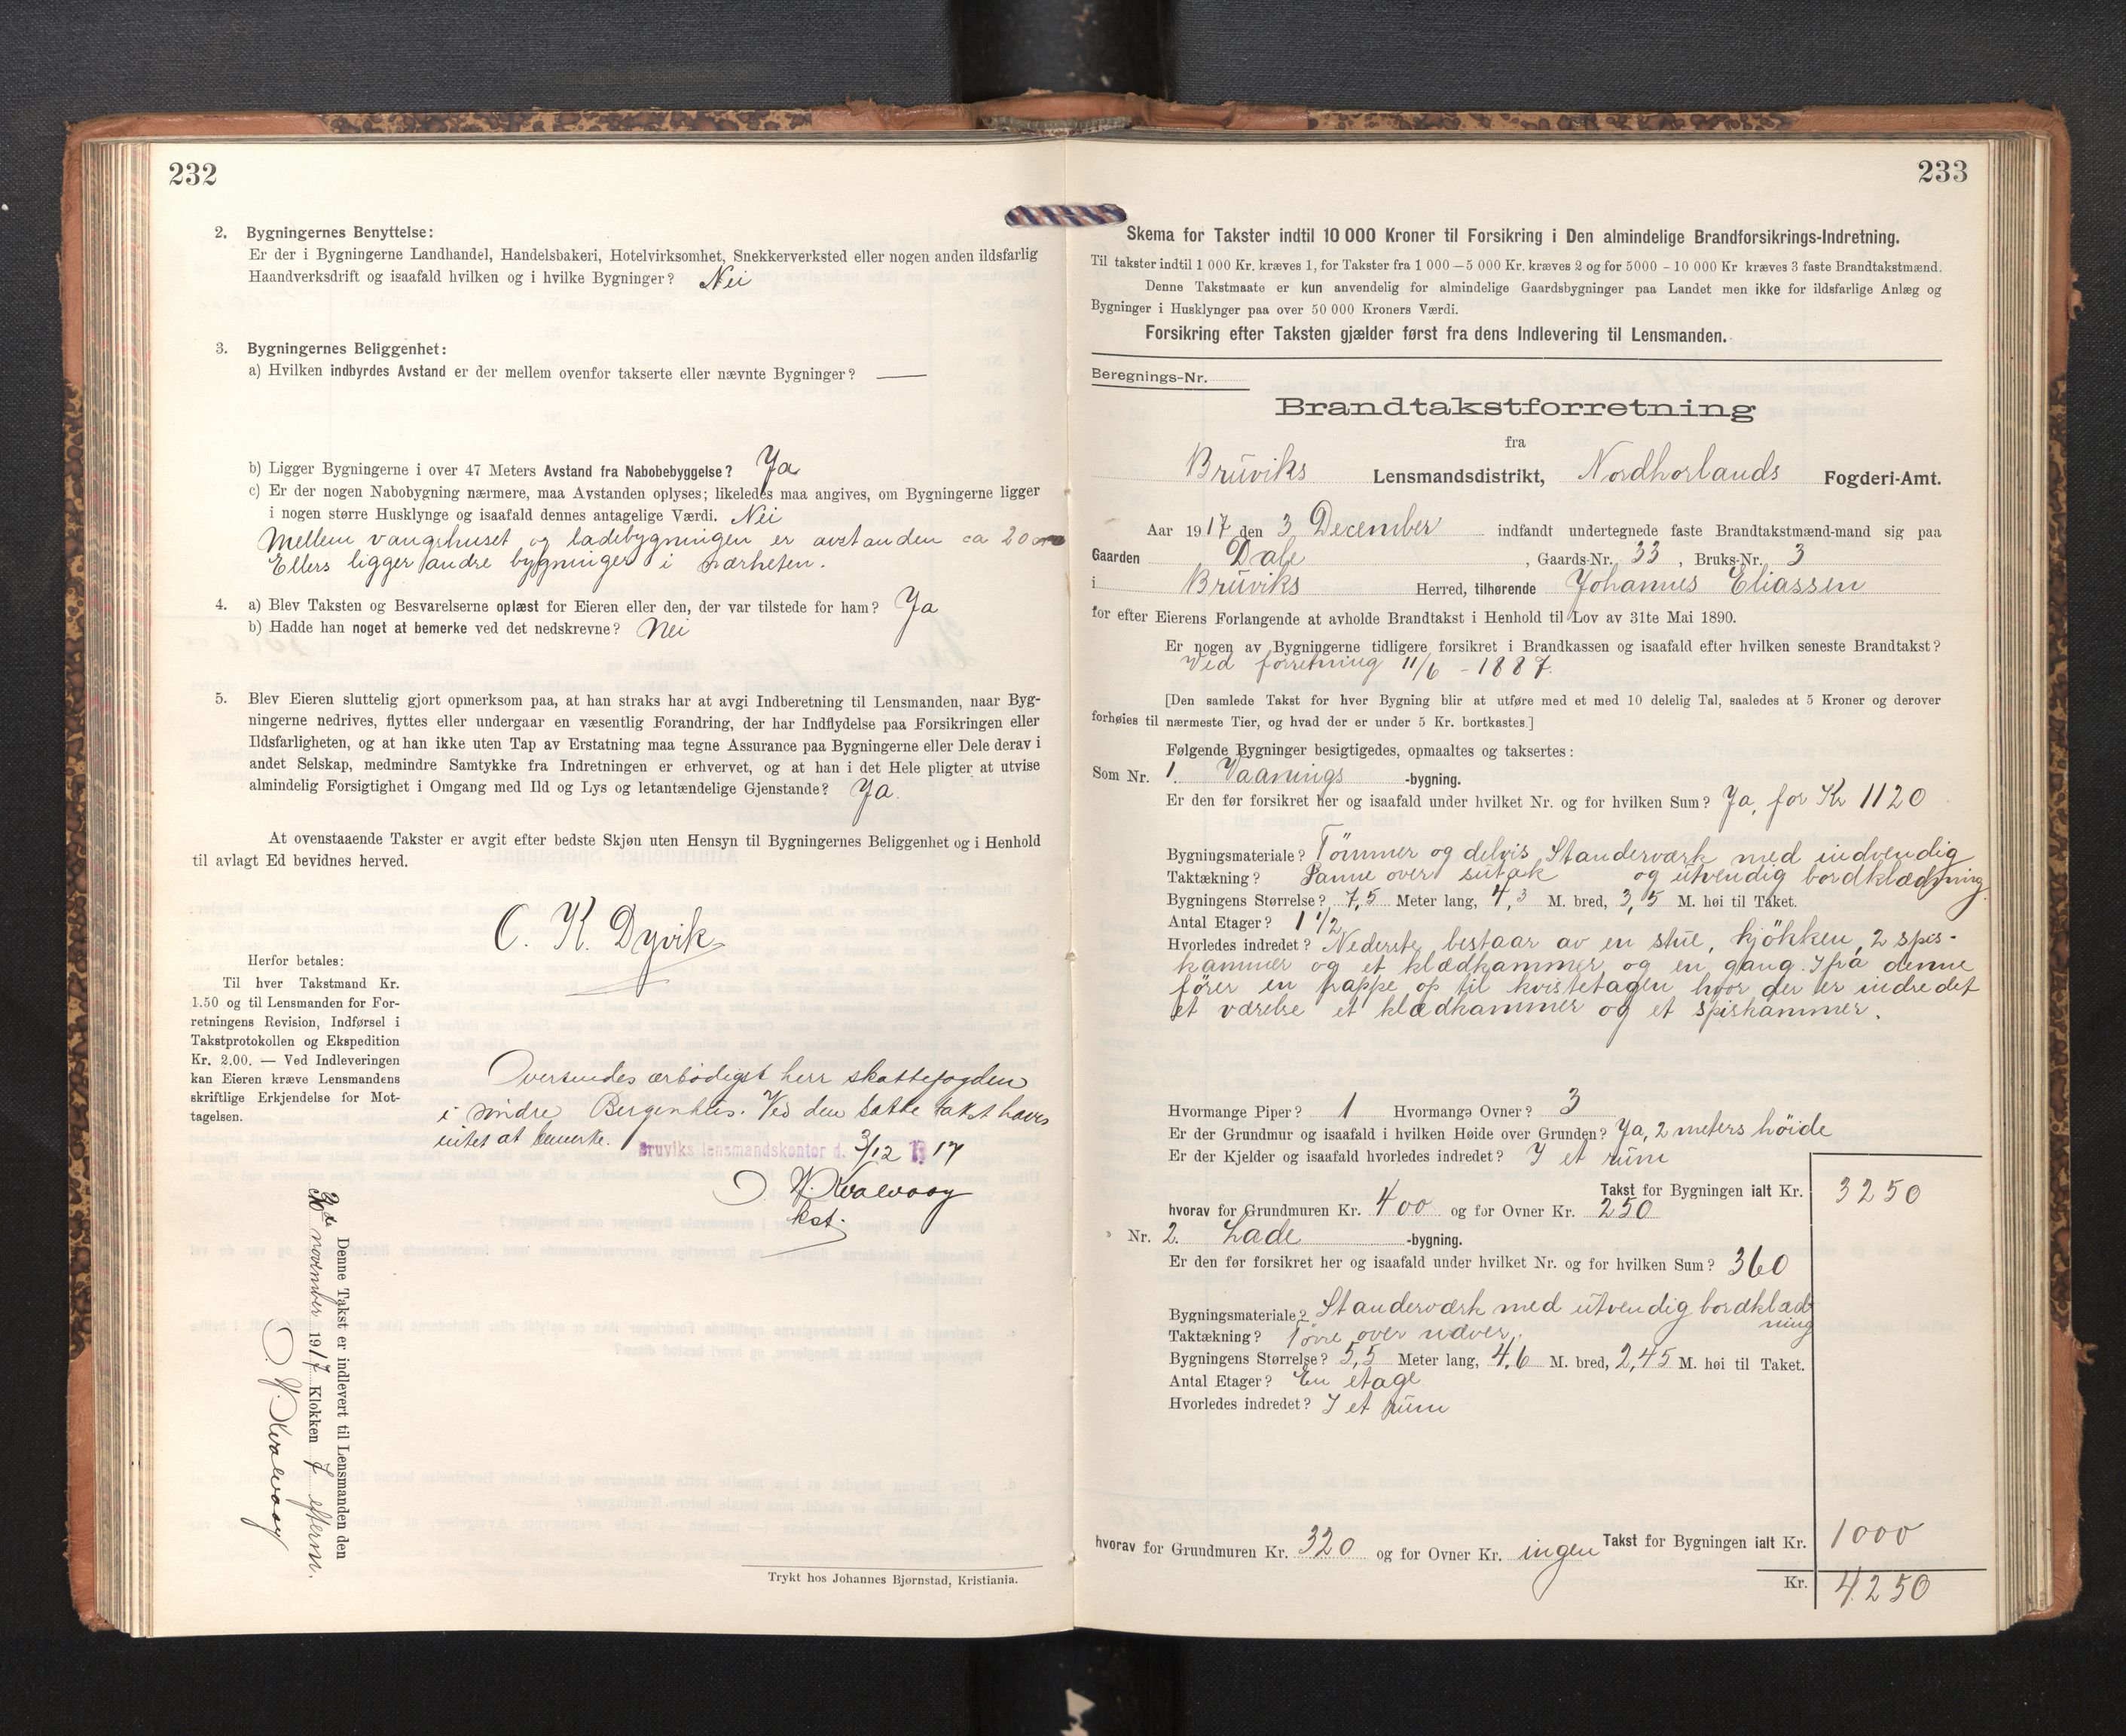 232
2. Bygningernes Benyttelse:
Er der i Bygningerne Landhandel, Handelsbakeri, Hotelvirksomhet, Snekkerverksted eller nogen anden ildsfarlig
Haandverksdrift og isaafald hvilken og i hvilke Bygninger? Nei
3. Bygningernes Beliggenhet:
a) Hvilken indbyrdes Avstand er der mellem ovenfor takserte eller nævnte Bygninger? —
b) Ligger Bygningerne i over 47 Meters Avstand fra Nabobebyggelse? Ja
c) Er der nogen Nabobygning nærmere, maa Avstanden oplyses; likeledes maa angives, om Bygningerne ligger
i nogen større Husklynge og isaafald dennes antagelige Værdi. Nei
Mellem vaangshuset og ladebygningen er avstanden ca 20 m
Ellers ligger andre bygninger i nærheten.
4. a) Blev Taksten og Besvarelserne oplæst for Eieren eller den, der var tilstede for ham? Ja
b) Hadde han noget at bemerke ved det nedskrevne? Nei
5. Blev Eieren sluttelig gjort opmerksom paa, at han straks har at avgi Indberetning til Lensmanden, naar Byg-
ningerne nedrives, flyttes eller undergaar en væsentlig Forandring, der har Indflydelse paa Forsikringen eller
Ildsfarligheten, og at han ikke uten Tap av Erstatning maa tegne Assurance paa Bygningerne eller Dele derav i
andet Selskap, medmindre Samtykke fra Indretningen er erhvervet, og at han i det Hele pligter at utvise
almindelig Forsigtighet i Omgang med Ild og Lys og letantændelige Gjenstande? Ja.
At ovenstaaende Takster er avgit efter bedste Skjøn uten Hensyn til Bygningernes Beliggenhet og i Henhold
til avlagt Ed bevidnes herved.
O. K. Dyvik
Herfor betales:
Til hver Takstmand Kr.
1.50 og til Lensmanden for For-
retningens Revision, Indførsel i
Takstprotokollen og Ekspedition
Kr. 2.00. — Ved Indleveringen
kan Eieren kræve Lensmandens
skriftlige Erkjendelse for Mot-
tagelsen.
Oversendes ærbødigst herr skattefogden
i søndre Bergenhus. Ved den satte takst haves
intet at bemerke.
Bruviks lensmandskontor d. 3/12 1917
O. W. Kvalvaag
kst.
Denne Takst er indlevert til Lensmanden den
november 1917 Klokken 7 efterm.
O. W. Kvalvaag
Trykt hos Johannes Bjørnstad, Kristiania.
233
Skema for Takster indtil 10 000 Kroner til Forsikring i Den almindelige Brandforsikrings-Indretning.
Til takster indtil 1 000 Kr. kræves 1, for Takster fra 1 000 — 5 000 Kr. kræves 2 og for 5000 – 10 000 Kr kræves 3 faste Brandtakstmænd.
Denne Takstmaate er kun anvendelig for almindelige Gaardsbygninger paa Landet men ikke for ildsfarlige Anlæg og
Bygninger i Husklynger paa over 50 000 Kroners Værdi.
Forsikring efter Taksten gjælder først fra dens Indlevering til Lensmanden.
Beregnings-Nr.
Brandtakstforretning
fra
Brüviks Lensmandsdistrikt, Nordhorlands Fogderi-Amt.
Aar 1917 den 3 December indfandt undertegnede faste Brandtakstmænd-mand sig paa
Gaarden Dale, Gaards-Nr. 33, Bruks-Nr. 3
i Brüviks Herred, tilhørende Johannes Eliassen
for efter Eierens Forlangende at avholde Brandtakst i Henhold til Lov av 31te Mai 1890.
Er nogen av Bygningerne tidligere forsikret i Brandkassen og isaafald efter hvilken seneste Brandtakst?
Ved forretning 11/6 - 1887.
[Den samlede Takst for hver Bygning blir at utføre med et med 10 delelig Tal, saaledes at 5 Kroner og derover
forhøies til nærmeste Tier, og hvad der er under 5 Kr. bortkastes.]
Følgende Bygninger besigtigedes, opmaaltes og taksertes:
Som Nr. 1. Vaanings -bygning.
Er den før forsikret her og isaafald under hvilket Nr. og for hvilken Sum? Ja, for Kr 1120
Bygningsmateriale? Tömmer og delvis Standerværk med indvendig
Taktækning? Panne over sutak og utvendig bordklædning
Bygningens Størrelse? 7,5 Meter lang, 4,3 M. bred, 3,5 M. høi til Taket.
Antal Etager? 1 1/2
Hvorledes indredet? Nederste bestaar av en stue, kjökken, 2 spis-
kammer og et klædkammer og en gang. Ifra denne
fører en trappe op til kvistetagen hvor der er indredet
et værelse et klædkammer og et spiskammer.
Hvormange Piper? 1 Hvormange Ovner? 3
Er der Grundmur og isaafald i hvilken Høide over Grunden? Ja, 2 meters höide
Er der Kjelder og isaafald hvorledes indredet? I et rüm
Takst for Bygningen ialt Kr. 3250
hvorav for Grundmuren Kr. 400 og for Ovner Kr. 250
» Nr. 2. Lade -bygning.
Er den før forsikret her og isaafald under hvilket Nr. og for hvilken Sum? 360
Bygningsmateriale? Standerværk med utvendig bordklæd
ning
Taktækning? Törre over næver.
Bygningens Størrelse? 5,5 Meter lang, 4,6 M. bred, 2,45 M. høi til Taket.
Antal Etager? En etage
Hvorledes indredet? I et rüm
Takst for Bygningen ialt Kr. 1000
hvorav for Grundmuren Kr. 320 og for Ovner Kr. ingen
Kr. 4250